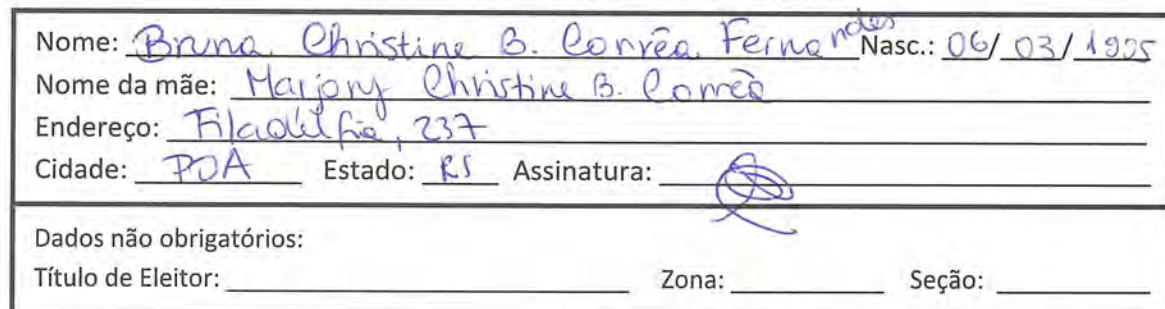 Nome: Bruna Christine B. Corrêa Fernandes Nasc.: 06/03/1995
Nome da mãe: Marjory Christine B. Corrêa
Endereço: Filadélfia, 237
Cidade: POA Estado: RS Assinatura:
Dados não obrigatórios:
Título de Eleitor: Zona: Seção: